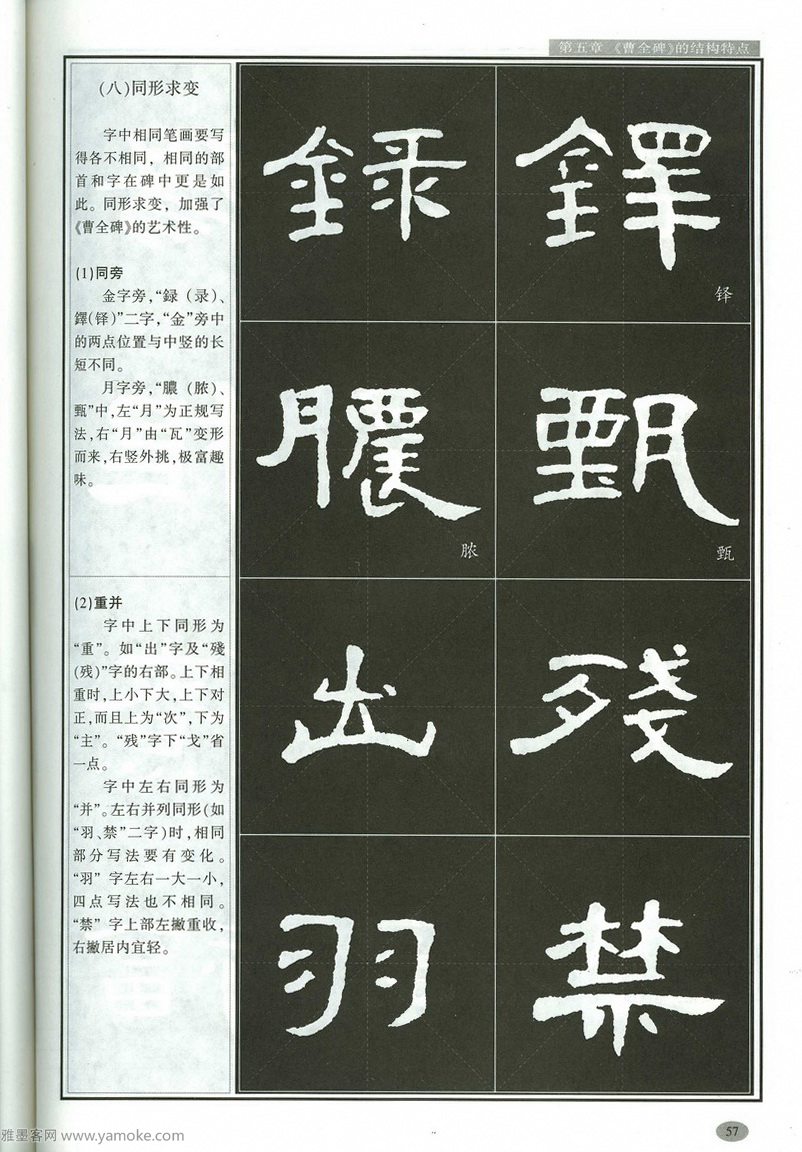 第五章 《曹全碑》的结构特点
(八)同形求变
字中相同笔画要写
得各不相同，相同的部
首和字在碑中更是如
此。同形求变，加强了
《曹全碑》的艺术性。
(1)同旁
金字旁,“録（录）、
鐸(铎)”二字,“金”旁中
的两点位置与中竖的长
短不同。
月字旁,“膿（脓）、
甄”中,左“月”为正规写
法,右“月”由“瓦”变形
而来,右竖外挑,极富趣
味。
(2)重并
字中上下同形为
“重”。如“出”字及“殘
(残)”字的右部。上下相
重时,上小下大,上下对
正,而且上为“次”,下为
“主”。“残”字下“戈”省
一点。
字中左右同形为
“并”。左右并列同形(如
“羽、禁”二字)时,相同
部分写法要有变化。
“羽”字左右一大一小,
四点写法也不相同。
“禁”字上部左撇重收,
右撇居内宜轻。
録 鐸
铎
膿 甄
脓 甄
出 殘
羽 禁
57
雅墨客网 www.yamoke.com